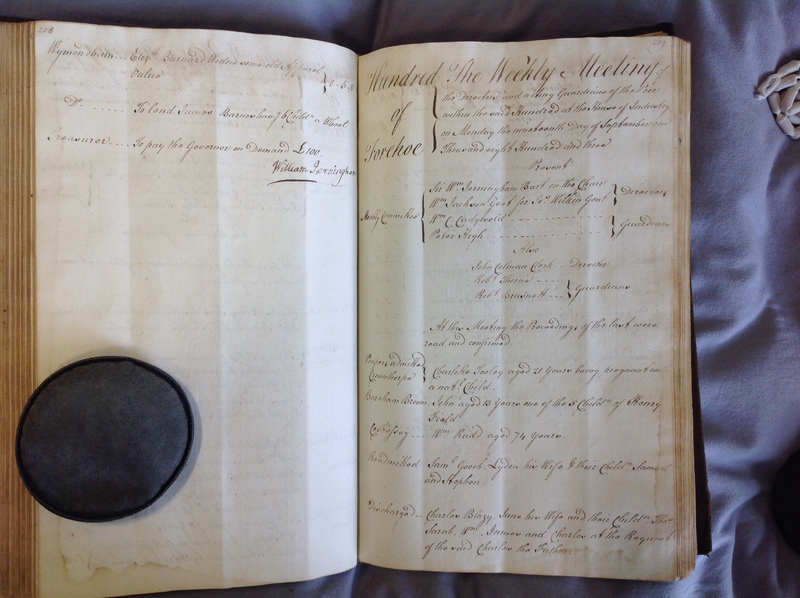 208
Wymondham Eliz.th Barnard Widow some old Apparal
value 0-5-0
D.o To lend James Barnes hav.g 6 Child.n a Wheel
Treasurer To pay the Governor on Demand £100.
William Jerningham
209
Hundred of Forehoe
The Weekly Meeting of
the Directors and acting Guardians of the Poor
within the said Hundred at the House of Industry
on Monday the nineteenth Day of September one
Thousand eight Hundred and three
Present
Monthly Committee
Sir W.m Jerningham Bar.t in the Chair
W.m Jackson Gent for Jo.s Wilkin Gent
Directors
W.m C.
Peter High
Guardians
Also
John Colman Clerk Director
Rob.t Thorne
Rob.t Brasnett
Guardians
At this Meeting the Proceedings of the last were
read and confirmed
Paupers admitted
Crownthorpe
Charlotte aged 21 Years being pregnant with
a nat.l Child.
Barnham Broom John aged 13 Years one of the 5 Child.n of Henry
Field
Cossey W.m Rudd aged 74 Years.
Readmitted Sam.l Gooch, Lydia his Wife & their Child.n Samuel
and Stephen
Discharged Charles Blazy, Jane his Wife and their Child.n Tho.s
Sarah, W.m James and Charles at the Request
of the said Charles the Father